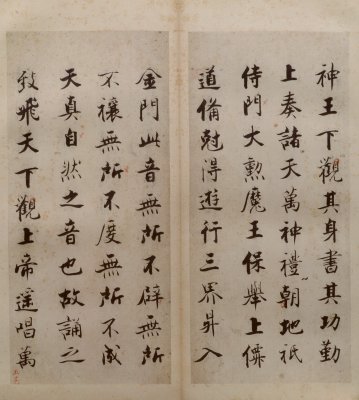 神王下觀其身書其功勤
上奏諸天萬神禮朝地祇
侍門大勳魔王保舉上僊
道備尅得遊行三界昇入
金門此音無所不辟無所
不禳無所不度無所不成
天真自然之音也故誦之
致飛天下觀上帝遙唱萬